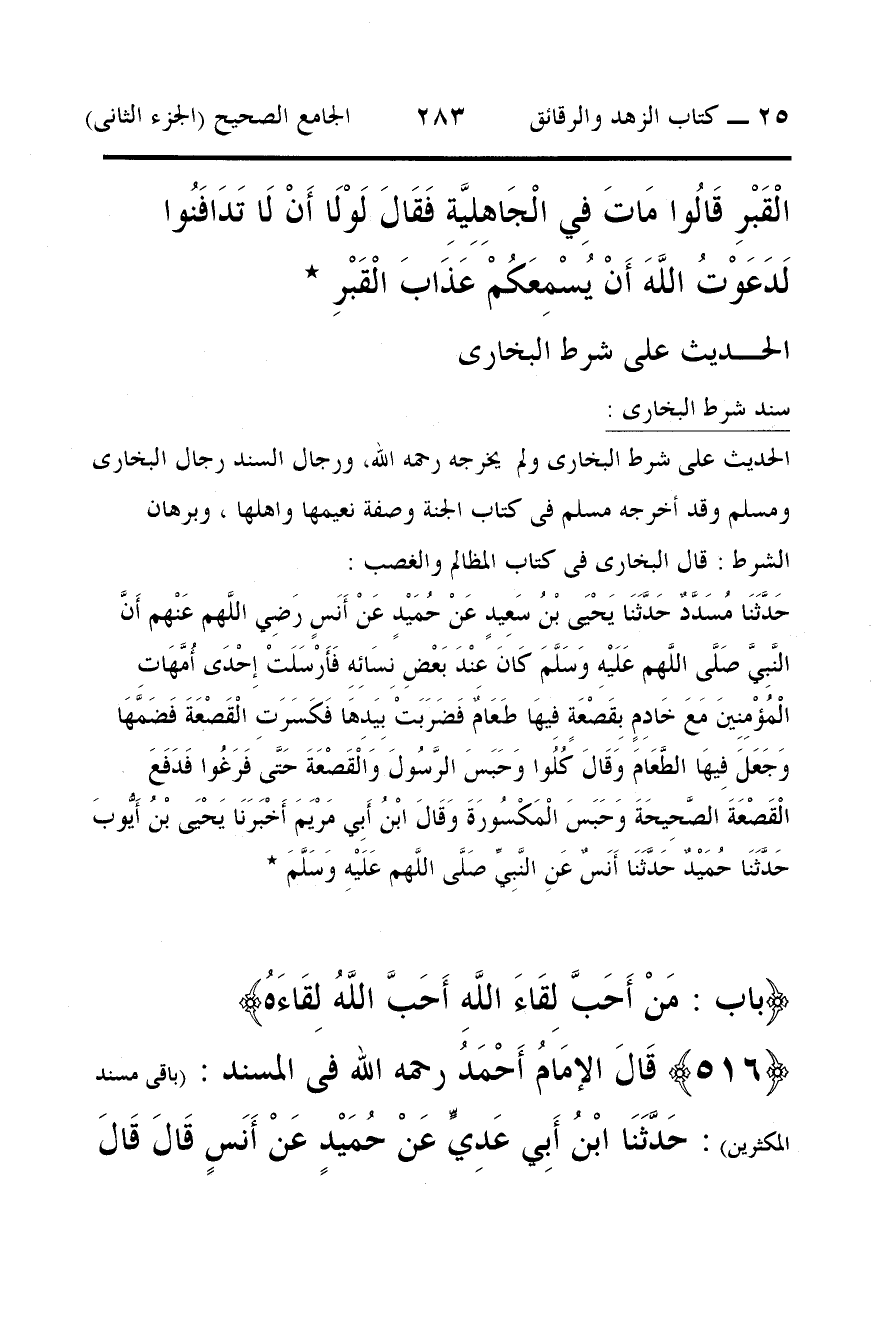 ٢٥ ــ كتاب الزهد والرقائق ٢٨٣ الجامع الصحيح (الجزء الثانى)
الْقَبْرِ قَالُوا مَاتَ فِي الْجَاهِلِيَّةِ فَقَالَ لَوْلَا أَنْ لَا تَدَافَنُوا
لَدَعَوْتُ اللَّهَ أَنْ يُسْمِعَكُمْ عَذَابَ الْقَبْرِ *
الحــديث على شرط البخارى
سند شرط البخارى :
الحديث على شرط البخارى ولم يخرجه رحمه الله، ورجال السند رجال البخارى
ومسلم وقد أخرجه مسلم فى كتاب الجنة وصفة نعيمها واهلها ، وبرهان
الشرط : قال البخارى فى كتاب المظالم والغصب :
حَدَّثَنَا مُسَدَّدٌ حَدَّثَنَا يَحْيَى بْنُ سَعِيدٍ عَنْ حُمَيْدٍ عَنْ أَنَسٍ رَضِي اللَّهم عَنْهم أَنَّ
النَّبِيَّ صَلَّى اللَّهم عَلَيْهِ وَسَلَّمَ كَانَ عِنْدَ بَعْضِ نِسَائِهِ فَأَرْسَلَتْ إِحْدَى أُمَّهَاتِ
الْمُؤْمِنِينَ مَعَ خَادِمٍ بِقَصْعَةٍ فِيهَا طَعَامٌ فَضَرَبَتْ بِيَدِهَا فَكَسَرَتِ الْقَصْعَةَ فَضَمَّهَا
وَجَعَلَ فِيهَا الطَّعَامَ وَقَالَ كُلُوا وَحَبَسَ الرَّسُولَ وَالْقَصْعَةَ حَتَّى فَرَغُوا فَدَفَعَ
الْقَصْعَةَ الصَّحِيحَةَ وَحَبَسَ الْمَكْسُورَةَ وَقَالَ ابْنُ أَبِي مَرْيَمَ أَخْبَرَنَا يَحْيَى بْنُ أَيُّوبَ
حَدَّثَنَا حُمَيْدٌ حَدَّثَنَا أَنَسٌ عَنِ النَّبِيِّ صَلَّى اللَّهم عَلَيْهِ وَسَلَّمَ *
﴿باب : مَنْ أَحَبَّ لِقَاءَ اللَّهِ أَحَبَّ اللَّهُ لِقَاءَهُ﴾
﴿٥١٦﴾ قَالَ الإِمَامُ أَحْمَدُ رحمه الله فى المسند : (باقى مسند
المكثرين) : حَدَّثَنَا ابْنُ أَبِي عَدِيٍّ عَنْ حُمَيْدٍ عَنْ أَنَسٍ قَالَ قَالَ